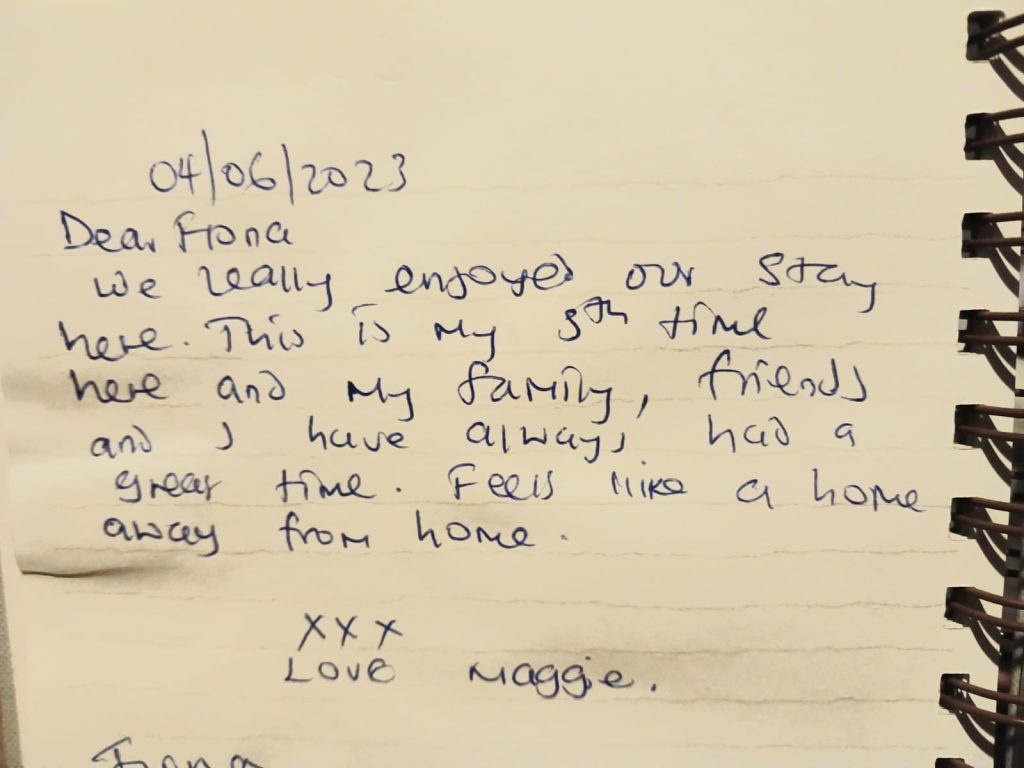 04/06/2023
Dear Fiona
we really enjoyed our stay
here. This is my 5th time
here and my family, friends
and I have always had a
great time. Feels like a home
away from home.
XXX
Love Maggie.
Fiona